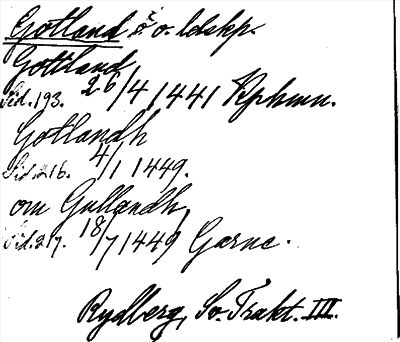 Gotland ö o. ldskp.
Gottland
Sid. 193. 26/4 1441 Kphmn.
Gotlandh
Sid. 216. 4/1 1449.
om Gullandh
Sid. 217. 18/7 1449 Garne.
Rydberg, Sv. Trakt. III.